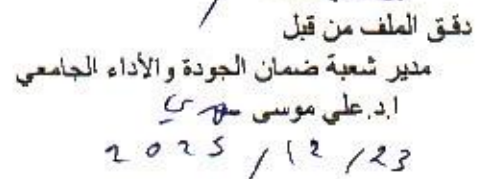 دقق الملف من قبل
مدير شعبة ضمان الجودة والأداء الجامعي
ا.د. علي موسى
2025 / 12 / 23